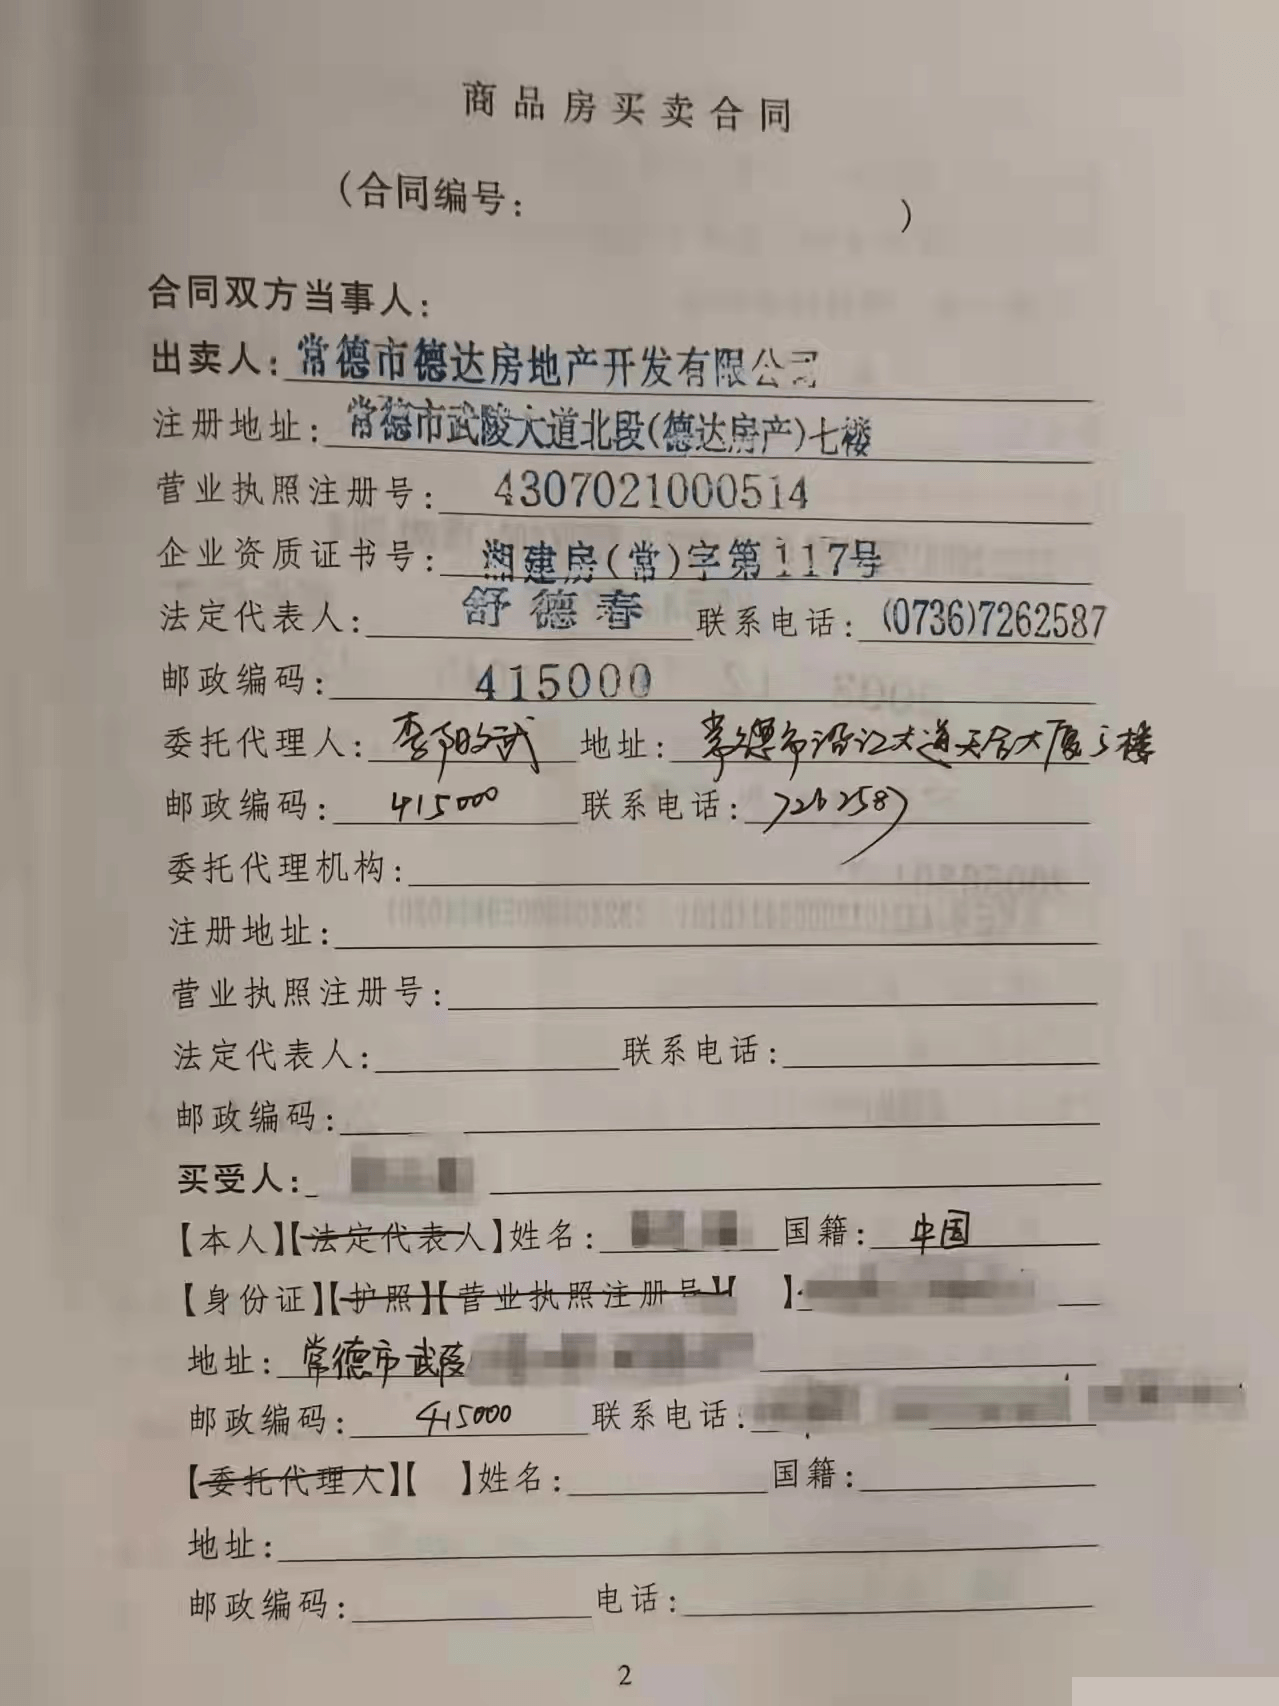 商品房买卖合同
（合同编号： ）
合同双方当事人：
出卖人：常德市德达房地产开发有限公司
注册地址：常德市武陵大道北段(德达房产)七楼
营业执照注册号：4307021000514
企业资质证书号：湘建房(常)字第117号
法定代表人：舒德春 联系电话：(0736)7262587
邮政编码：415000
委托代理人：李 武 地址：常德市沿江大道天合大厦5楼
邮政编码：415000 联系电话：7262587
委托代理机构：
注册地址：
营业执照注册号：
法定代表人： 联系电话：
邮政编码：
买受人：
【本人】【法定代表人】姓名： 国籍：中国
【身份证】【护照】【营业执照注册号】【 】
地址：常德市武陵
邮政编码：415000 联系电话：
【委托代理人】【 】姓名： 国籍：
地址：
邮政编码： 电话：
2